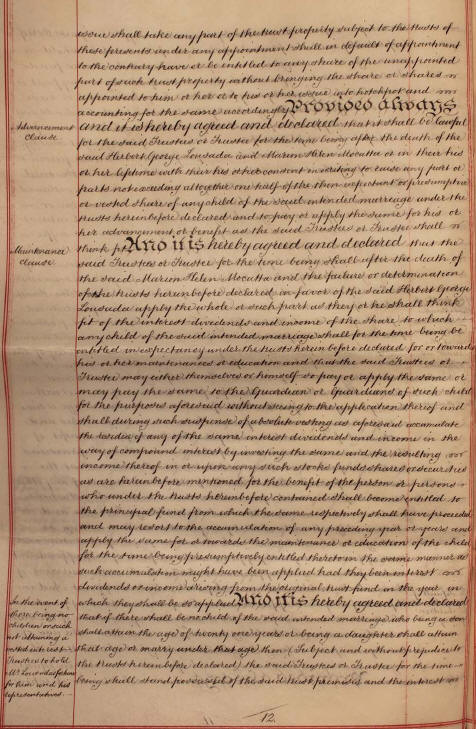 issue shall take any part of the trust property subject to the trusts of
these presents under any appointment shall in default of appointment
to the contrary have or be entitled to any share of the unappointed
part of such trust property without bringing the share or shares
appointed to him or her or to his or her issue into hotchpot and
accounting for the same accordingly Provided always
Advancement
Clause
and it is hereby agreed and declared that it shall be lawful
for the said Trustees or Trustee for the time being after the death of the
said Herbert George Lousada and Marion Helen Mocatta or in their his
or her lifetime with their his or her consent in writing to raise any part or
parts not exceeding altogether one half of the then expectant or presumptive
or vested share of any child of the said intended marriage under the
trusts hereinbefore declared and to pay or apply the same for his or
her advancement or benefit as the said Trustees or Trustee shall
Maintenance
Clause
think fit And it is hereby agreed and declared that the
said Trustees or Trustee for the time being shall after the death of
the said Marion Helen Mocatta and the failure or determination
of the trusts hereinbefore declared in favor of the said Herbert George
Lousada apply the whole or such part as they or he shall think
fit of the interest dividends and income of the share to which
any child of the said intended marriage shall for the time being be
entitled in expectancy under the trusts herein before declared for or towards
his or her maintenance or education and that the said Trustees or
Trustee may either themselves or himself so pay or apply the same or
may pay the same to the Guardian or Guardians of such child
for the purposes aforesaid without seeing to the application thereof and
shall during such suspense of absolute vesting as aforesaid accumulate
the residue if any of the same interest dividends and income in the
way of compound interest by investing the same and the resulting
income thereof in or upon any such stocks funds shares or securities
as are hereinbefore mentioned for the benefit of the person or persons
who under the trusts hereinbefore contained shall become entitled to
the principal fund from which the same respectively shall have proceeded
and may resort to the accumulation of any preceding year or years and
apply the same for or towards the maintenance or education of the child
for the time being presumptively entitled thereto in the same manner as
such accumulation might have been applied had they been interest
dividends or income arising from the original trust fund in the year in
In the event of
there being no
children or such
not attaining a
vested interest
Trustees to hold
Mr Lousada's fortune
for him and his
representatives
which they shall be so applied And it is hereby agreed and declared
that if there shall be no child of the said intended marriage who being a son
shall attain the age of twenty one years or being a daughter shall attain
that age or marry under that age then (subject and without prejudice to
the trusts hereinbefore declared) the said Trustees or Trustee for the time
being shall stand possessed of the said trust premises and the interest
12